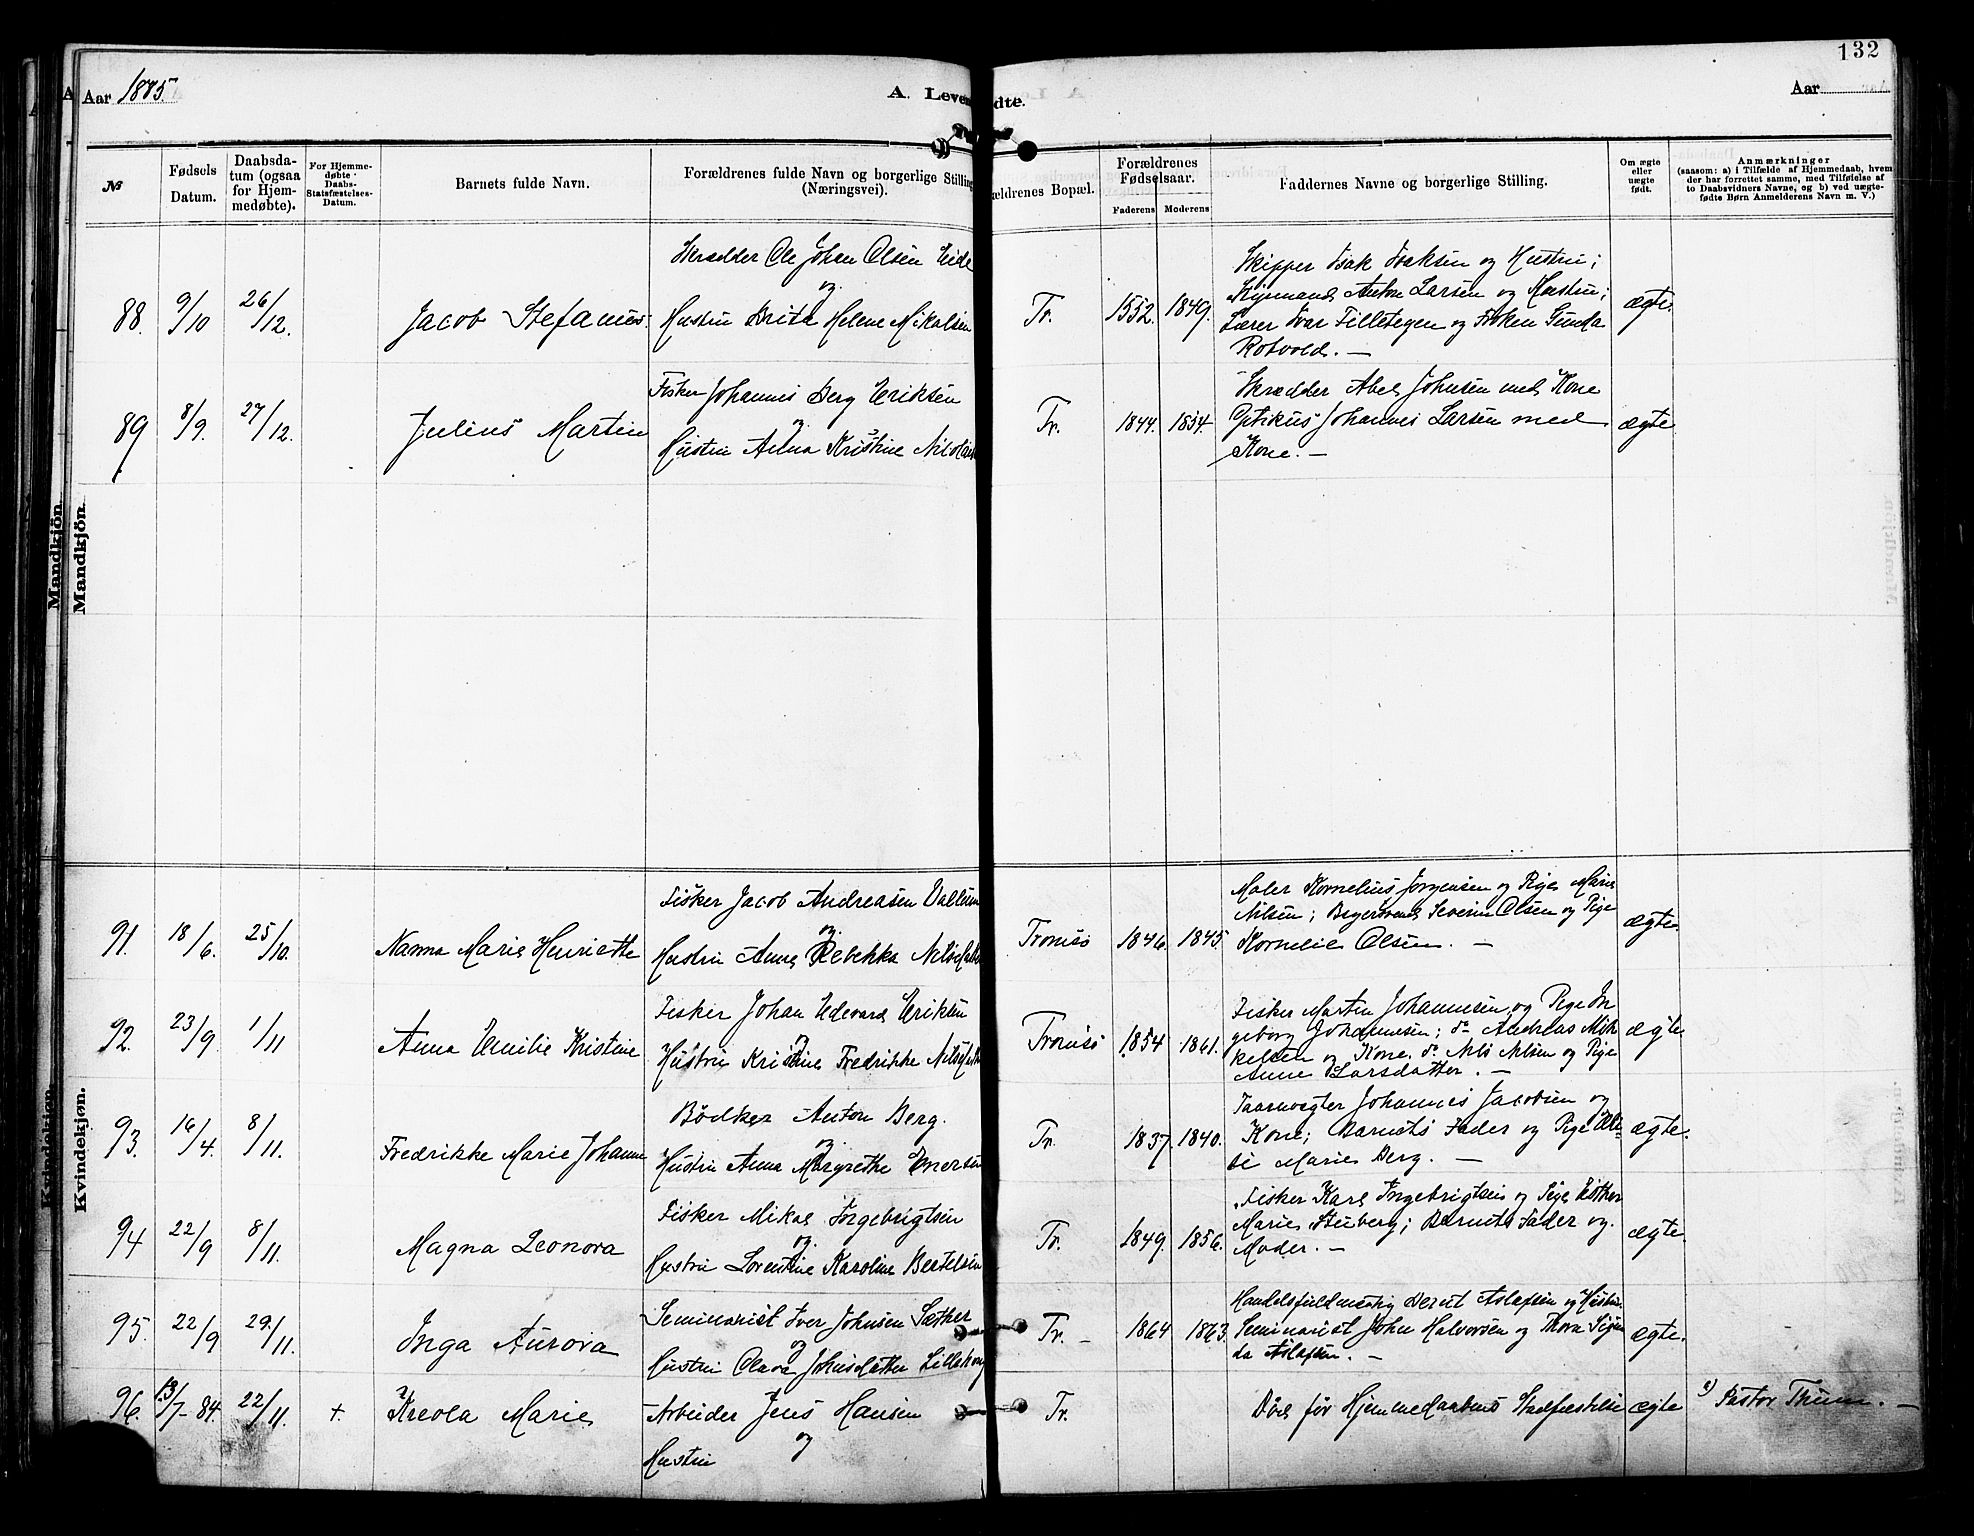 132
Aar 1885.
A. Leven
dte.
Aar
№
Fødsels
Datum.
Daabsda-
tum (ogsaa
for Hjem-
medøbte).
For Hjemme-
døbte
Daabs-
Statsfæstelses-
Datum.
Barnets fulde Navn.
Forældrenes fulde Navn og borgerlige Stilling
(Næringsvei).
ældrenes Bopæl.
Forældrenes
Fødselsaar.
Faderens
Moderens
Faddernes Navne og borgerlige Stilling.
Om ægte
eller
uægte
født.
Anmærkninger
(saasom: a) i Tilfælde af Hjemmedaab, hvem
der har forrettet samme, med Tilføielse af
to Daabsvidners Navne, og b) ved uægte-
fødte Børn Anmelderens Navn m. V.)
Mandkjön.
Mandkjön.
88. 9/10 26/12. Jacob Stefanus.
Skrædder Ole Johan Olsen Eide
og
Hustru Brita Helene Mikalsen
Tr. 1852. 1849.
Skipper Isak Isaksen og Hustru;
Styrmand Anton Larsen og Hustru;
Lærer Ivar Filletegen og Frøken
Rotvold. —
ægte.
89 8/9. 27/12. Julius Martin
Fisker Johannes Berg Eriksen
og
Hustru Anna Kristine
Tr. 1844. 1854.
Skrædder Abel Johnsen med Kone
Optikus Johannes Larsen med
Kone. —
ægte
Kvindekjøn.
Kvindekjøn.
91. 18/6. 25/10. Nanna Marie Henriette
Fisker Jacob Andreasen
og
Hustru Anne Rebekka
Tromsö 1846. 1845.
Maler Kornelius Jørgensen og Pige Marie
Nilsen; Severin Olsen og Pige
Kornelie Olsen. —
ægte
92. 23/9 1/11 Anna Emilie Kristine
Fisker Johan Edevard Eriksen
og
Hustru Kristine Fredrikke
Tromsö 1854 1861.
Fisker Martin Johannesen og Pige In
geborg Johannesen; do Andreas Mik
kelsen og Kone. do Nils Nilsen og Pige
Anne Larsdatter. —
ægte
93. 16/4. 8/11. Fredrikke Marie Johanne
Bödker Anton Berg.
og
Hustru Anna Margrethe
Tr. 1837. 1840.
Taarnvægter Johannes Jacobsen og
Kone; Barnets Fader og Pige
Marie Berg. —
ægte.
94 22/9 8/11. Magna Leonora
Fisker Mikal Ingebrigtsen
og
Hustru Lorentine Karoline Bertelsen
Tr. 1849. 1856.
Fisker Karl Ingebrigtsen og Pige
Marie Stenberg; Barnets Fader og
Moder. —
ægte.
95. 22/9 29./11. Inga Aurora
Seminarist Iver Johnsen Sæther
og
Hustru Olava Johnsdatter
Tr. 1864 1863.
Handelsfuldmægtig Bernt Aslaksen og Hustru
Seminarist John Halvorsen og Thora
Aslaksen. —
ægte.
96. 13/7-84. 22/11. +. Kreola Marie
Arbeider Jens Hansen
og
Hustru
Tr.
Död för Hjemmedaabens Stadfæstelse
ægte
Pastor Thum. —